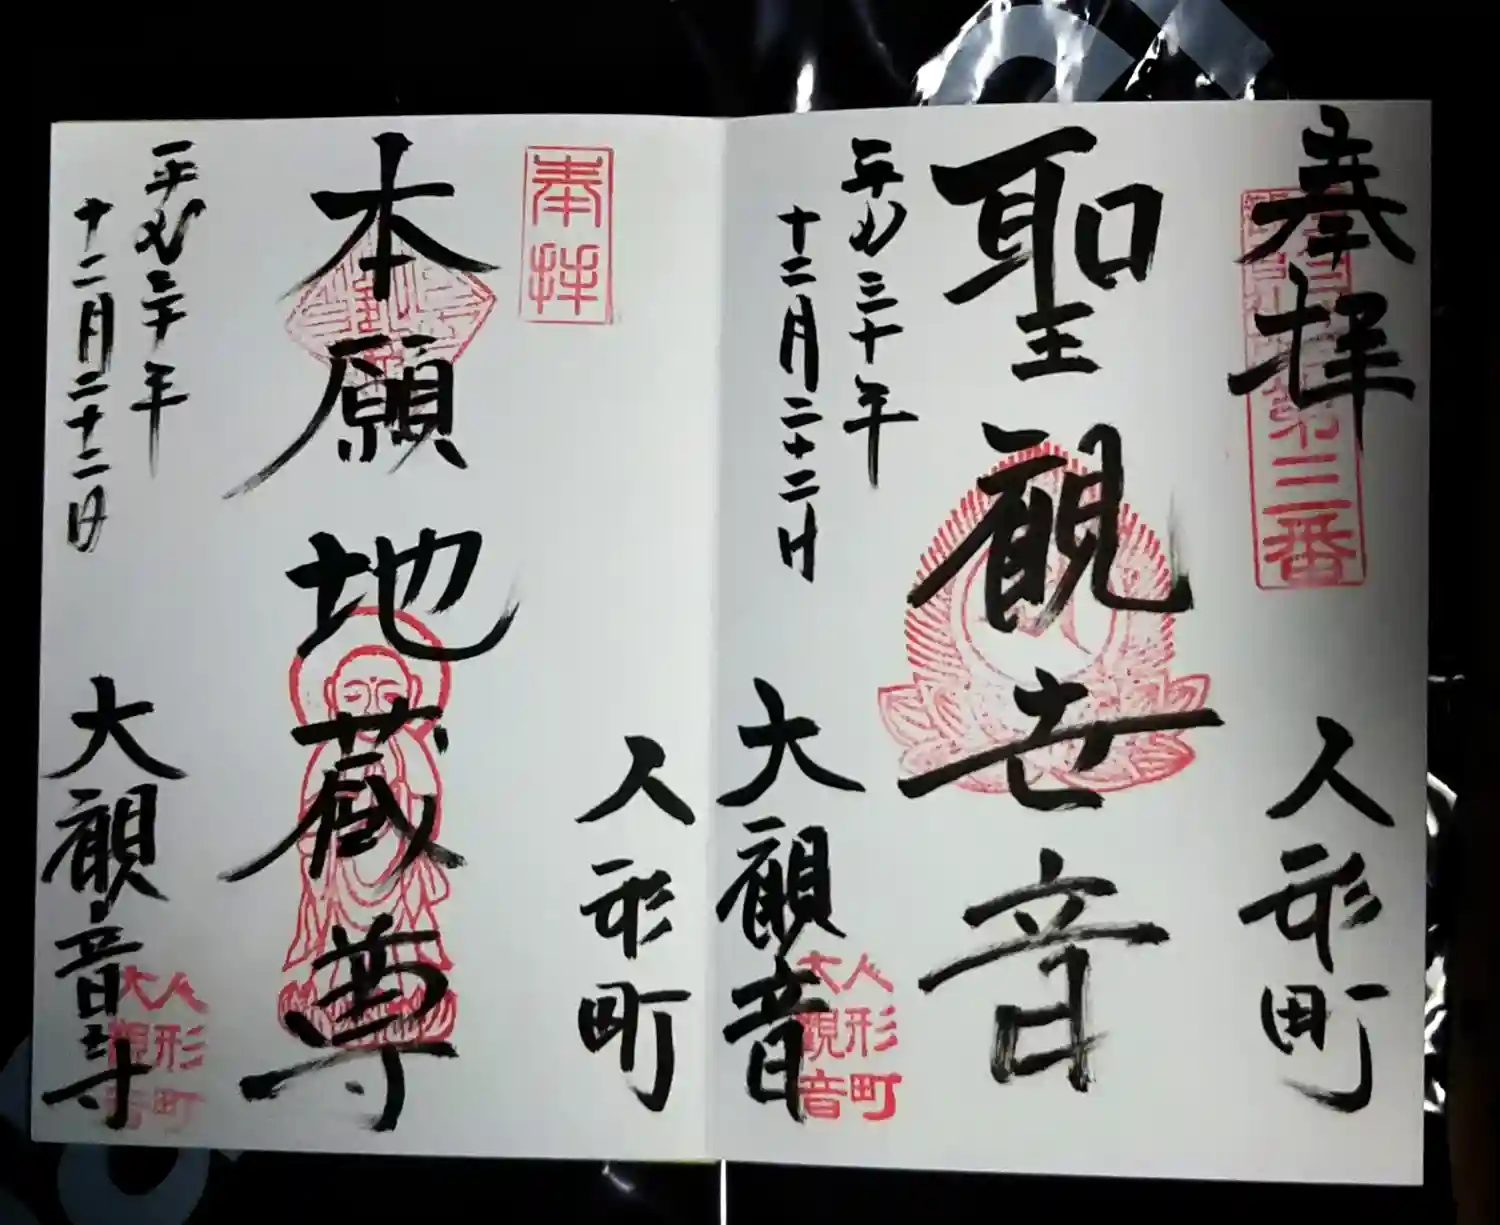 奉拝
第三番
人形町
聖観世音
平成三十年
十二月二十二日
大観音
人形町
大観音
奉拝
人形町
本願地蔵尊
平成三十年
十二月二十二日
大観音寺
人形町
大観音